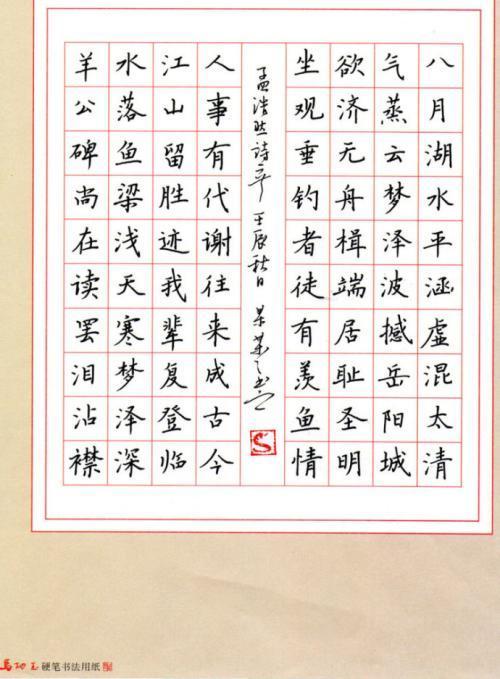 八月湖水平涵虚混太清
气蒸云梦泽波撼岳阳城
欲济无舟楫端居耻圣明
坐观垂钓者徒有羡鱼情
孟浩然诗 壬辰秋日
人事有代谢往来成古今
江山留胜迹我辈复登临
水落鱼梁浅天寒梦泽深
羊公碑尚在读罢泪沾襟
硬笔书法用纸